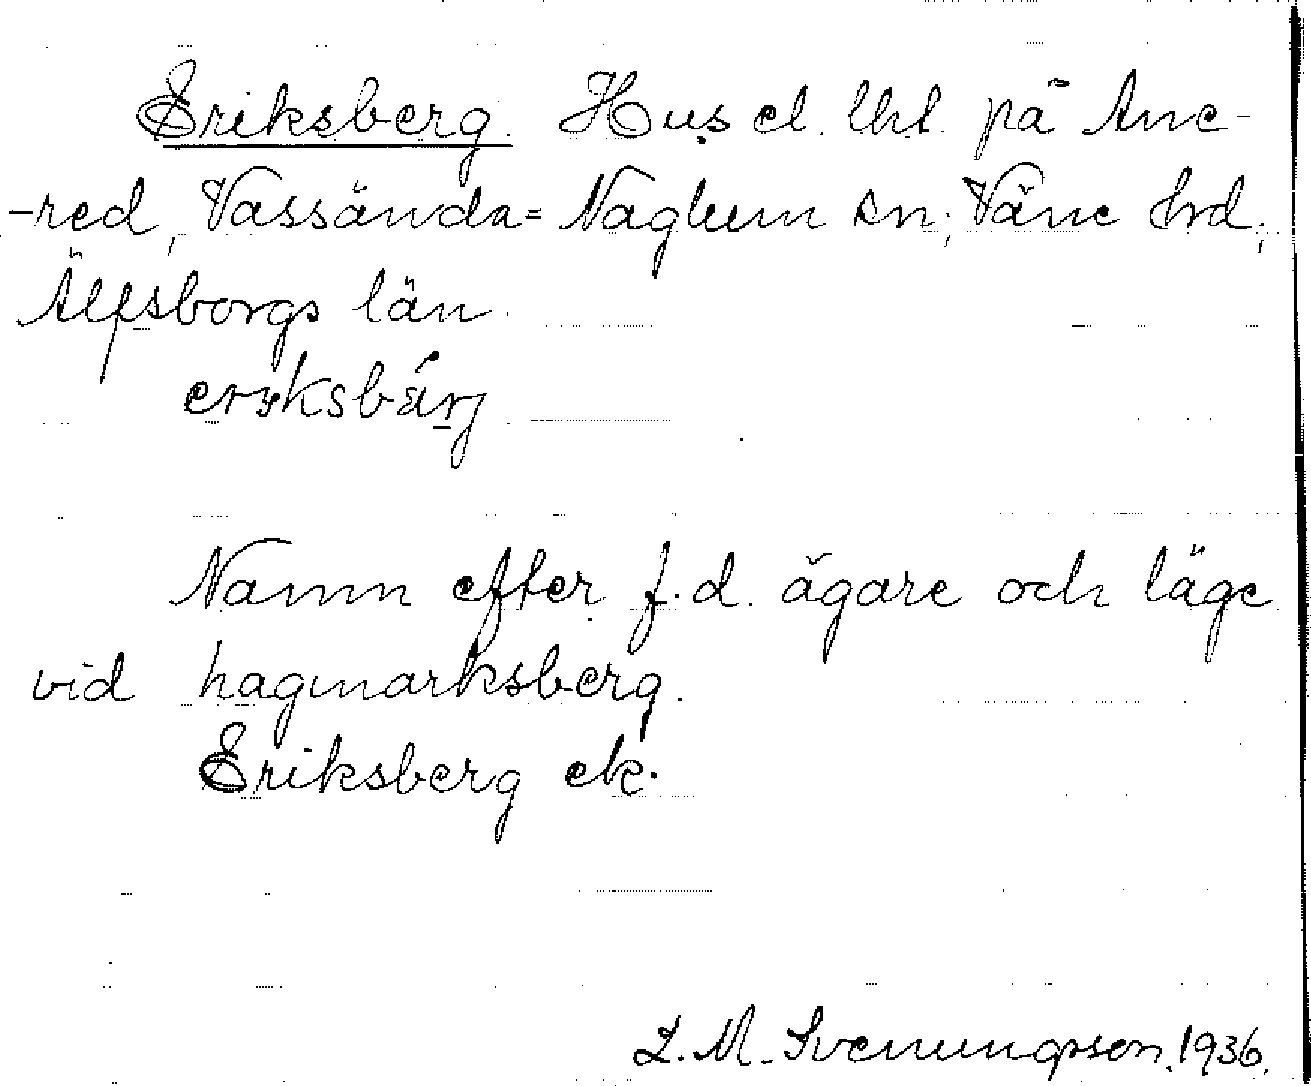 Eriksberg. Hus el. lht. på Ane-
-red, Vassända=Naglum sn; Väne hrd,
Älfsborgs län.
eryksbärj
Namn efter f.d. ägare och läge
vid hagmarksberg.
Eriksberg ek.
L. M. Svenungsson. 1936.